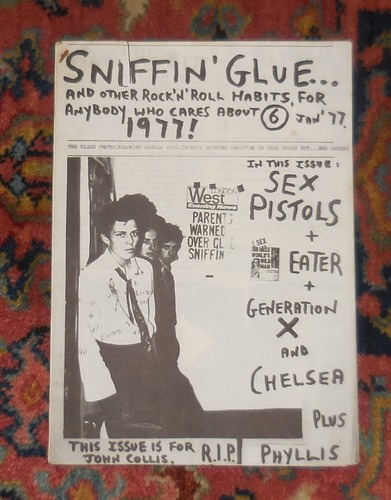 SNIFFIN' GLUE...
AND OTHER ROCK'N'ROLL HABITS, FOR
ANYBODY WHO CARES ABOUT ⑥ JAN' 77.
1977!
IN THIS ISSUE:
SEX
PISTOLS
+
EATER
+
GENERATION
X
AND
CHELSEA
PLUS
PHYLLIS
LONDON
West
PARENTS
WARNED
OVER GL E
SNIFFIN
SEX
THIS ISSUE IS FOR
JOHN COLLIS.
R.I.P.